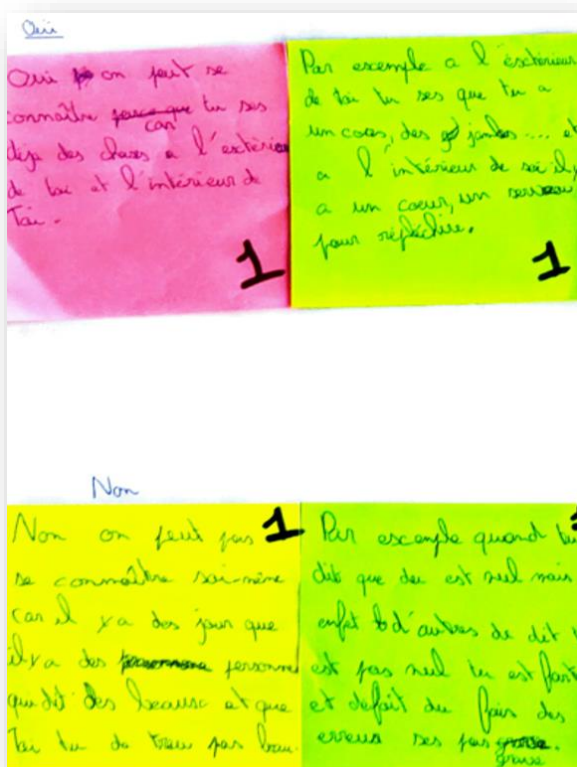 Oui
Oui on peut se
connaître parce que tu ses
car
déja des choses a l'extérieu
de toi et l'intérieur de
Toi.
1
Par escemple a l'éxctérieur
de toi tu ses que tu a
un corps, des jambes ... et
a l'intérieur de soi il y
a un coeur, un serveau
pour réfléchire.
1
Non
Non on peut pas
se connaître soi-même
car il y a des jour que
il y a des personne personnes
qui dit des beaux et que
Toi tu da treu pas beau
1
Par escemple quand tu
dit que du est nul mais
enfet d'autres de dit
est pas nul tu est fort
et defait du fais des
erreus ses pas grave.
grave